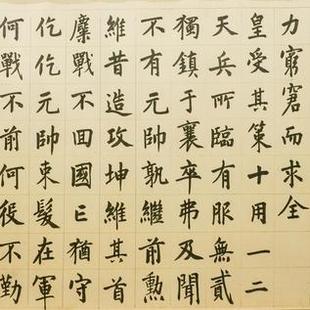 力窮窘而求全
皇受其策十用一二
天兵所臨有服無貳
獨鎮于襄卒弗及聞
不有元帥孰繼前勲
維昔造攻坤維其首
麋戰不囘國亡猶守
仡仡元帥束髮在軍
何戰不前何役不勤